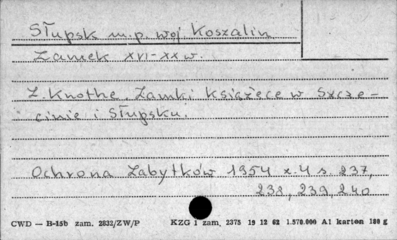 Słupsk m.p. woj. Koszalin
Zamek XVI-XX w.
Z. Knothe, Zamki książęce w Szcze-
cinie i Słupsku.
Ochrona Zabytków 1954 z.4 s. 237,
238, 239, 240
CWD — B-15b zam. 2832/ZW/P KZG 1 zam. 2375 19 12 62 1.570.000 A1 karton 180 g